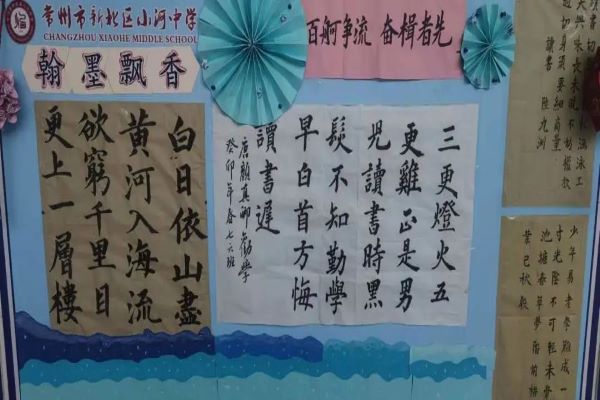 常州市新北区小河中学
CHANGZHOU XIAOHE MIDDLE SCHOOL
翰墨飘香
百舸争流 奋楫者先
白日依山盡
黄河入海流
欲窮千里目
更上一層樓
三更燈火五
更雞正是男
児讀書時黑
髮不知勤學
早白首方悔
讀書遲
唐顏真卿勸學
癸卯年春七六班
書切 涵泳工
味長未 不妨權放
過切身須要細商量
讀書 陸九渊
少年易老學難成一
寸光陰不可輕未覺
池塘春草夢階前梧
葉已秋聲